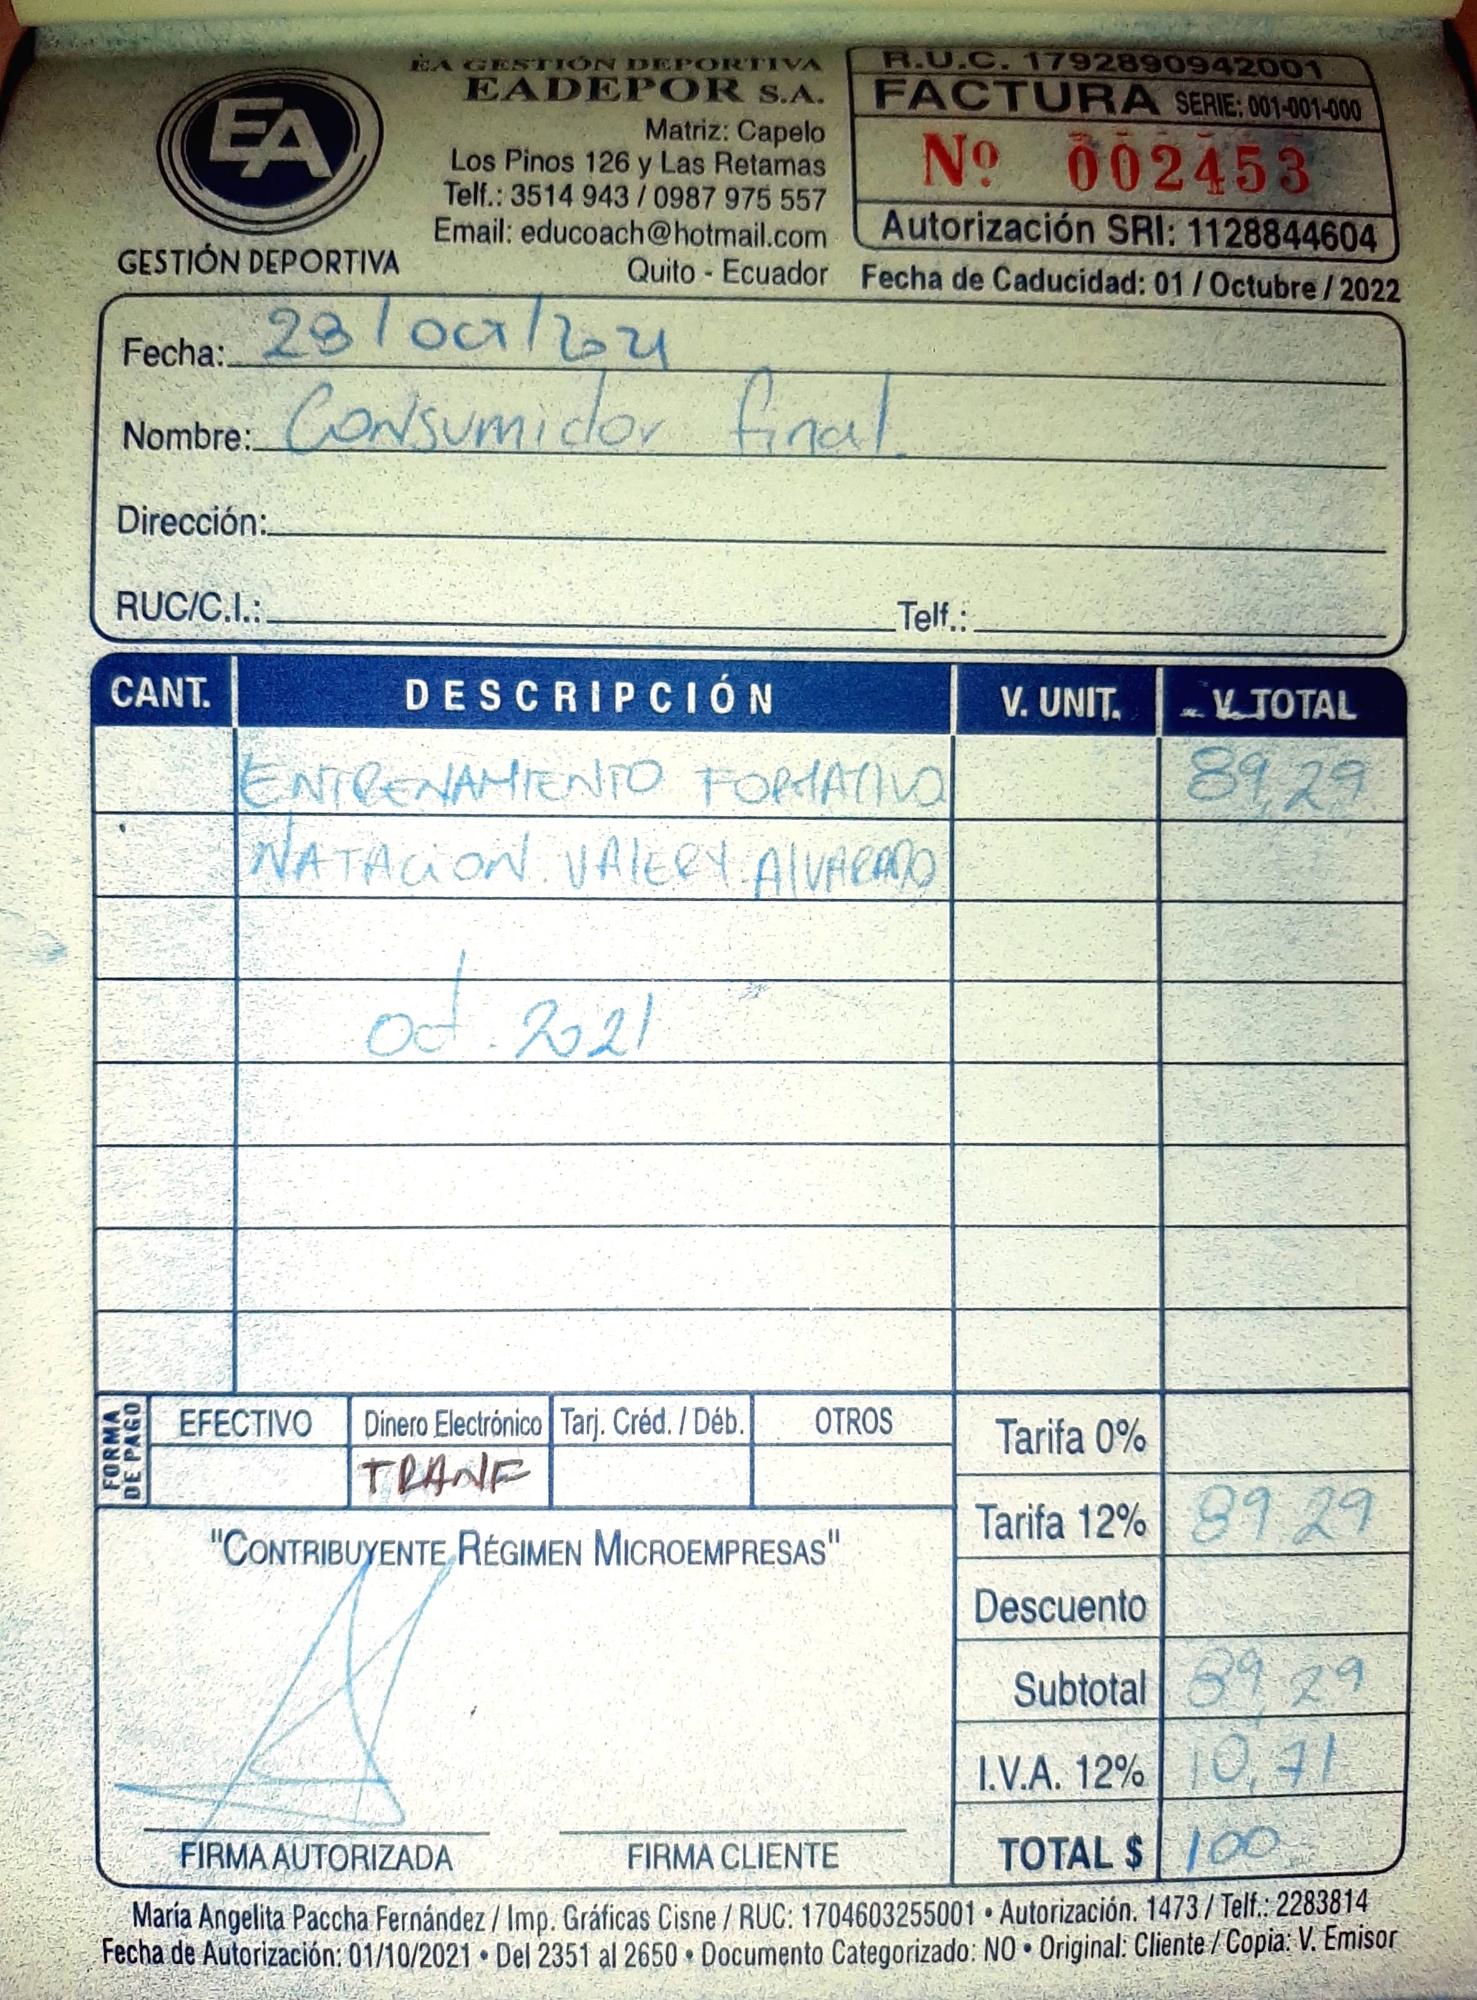 EA
GESTIÓN DEPORTIVA
EA GESTIÓN DEPORTIVA
EADEPOR S.A.
Matriz: Capelo
Los Pinos 126 y Las Retamas
Telf.: 3514 943 / 0987 975 557
Email: educoach@hotmail.com
Quito - Ecuador
R.U.C. 1792890942001
FACTURA SERIE: 001-001-000
Nº 002453
Autorización SRI: 1128844604
Fecha de Caducidad: 01 / Octubre / 2022
Fecha: 28/oct/2021
Nombre: Consumidor final.
Dirección:
RUC/C.I.: Telf.:
CANT. DESCRIPCIÓN V. UNIT. V. TOTAL
ENTRENAMIENTO FORMATIVO 89,29
NATACION. VALERY. ALVARADO
oct. 2021
FORMA DE PAGO
EFECTIVO Dinero Electrónico Tarj. Créd. / Déb. OTROS
TRANF
Tarifa 0%
Tarifa 12% 89.29
Descuento
Subtotal 89,29
I.V.A. 12% 10,71
TOTAL $ 100
"CONTRIBUYENTE RÉGIMEN MICROEMPRESAS"
FIRMA AUTORIZADA FIRMA CLIENTE
María Angelita Paccha Fernández / Imp. Gráficas Cisne / RUC: 1704603255001 • Autorización. 1473 / Telf.: 2283814
Fecha de Autorización: 01/10/2021 • Del 2351 al 2650 • Documento Categorizado: NO • Original: Cliente / Copia: V. Emisor